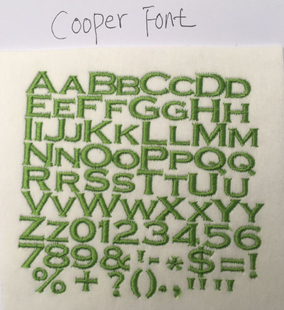 Cooper Font
AABBCCDD
EEFFGGHH
IIJJKKLLMM
NNOOPPQQ
RRSSTTUU
VVWWXXYY
ZZ0123456
789&!-*$=!
%+?().,"""